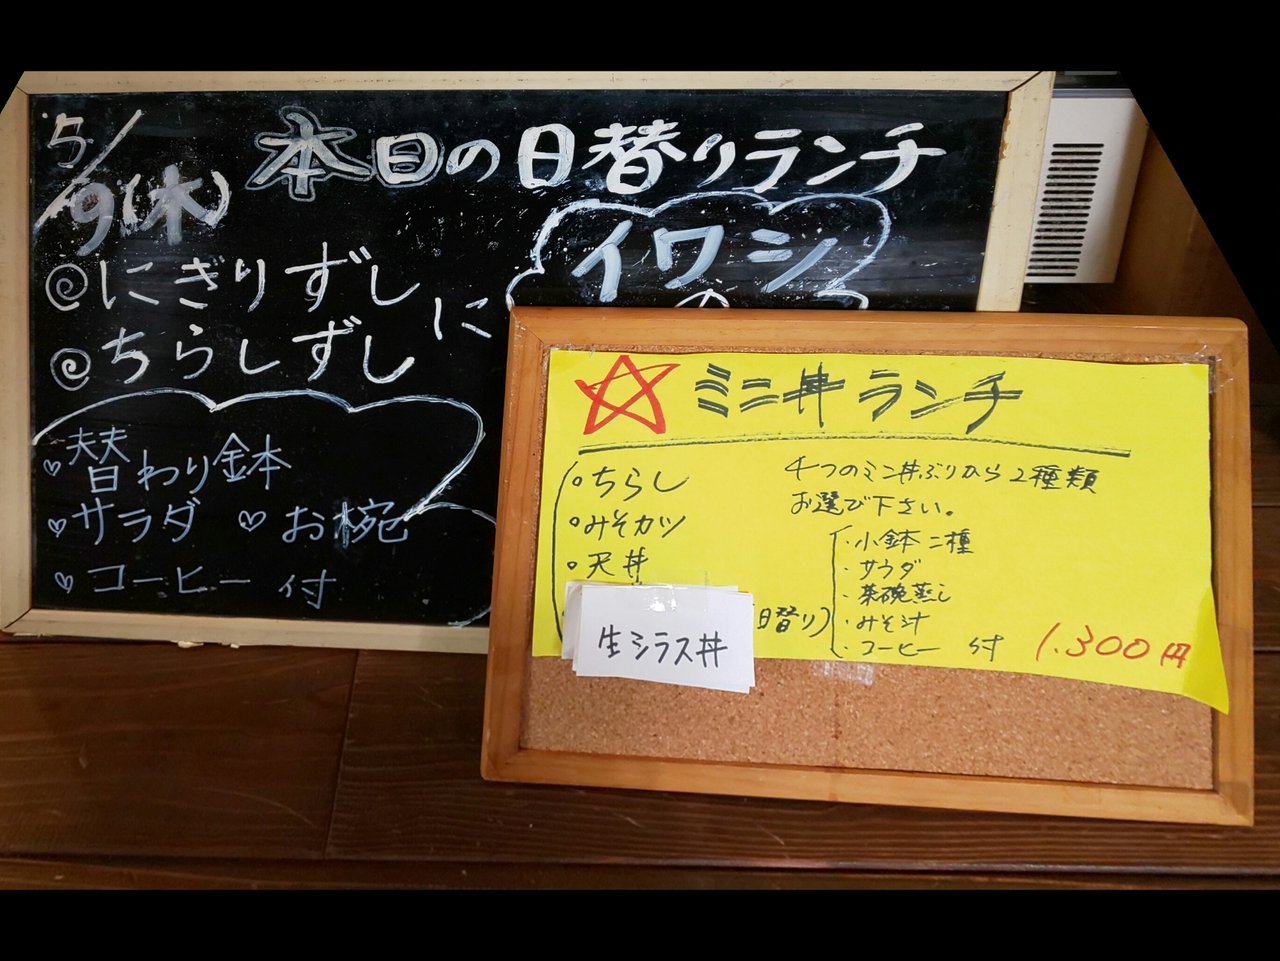 5/9(木)
本日の日替りランチ
@にぎりずし
@ちらしずし
に
イワシ
の
替わり鉢
サラダ お椀
コーヒー 付
ミニ丼ランチ
4つのミニ丼ぶりから2種類
お選び下さい。
ちらし
みそカツ
天丼
生シラス丼
日替り)
・小鉢二種
・サラダ
・茶碗蒸し
・みそ汁
・コーヒー 付
1.300円